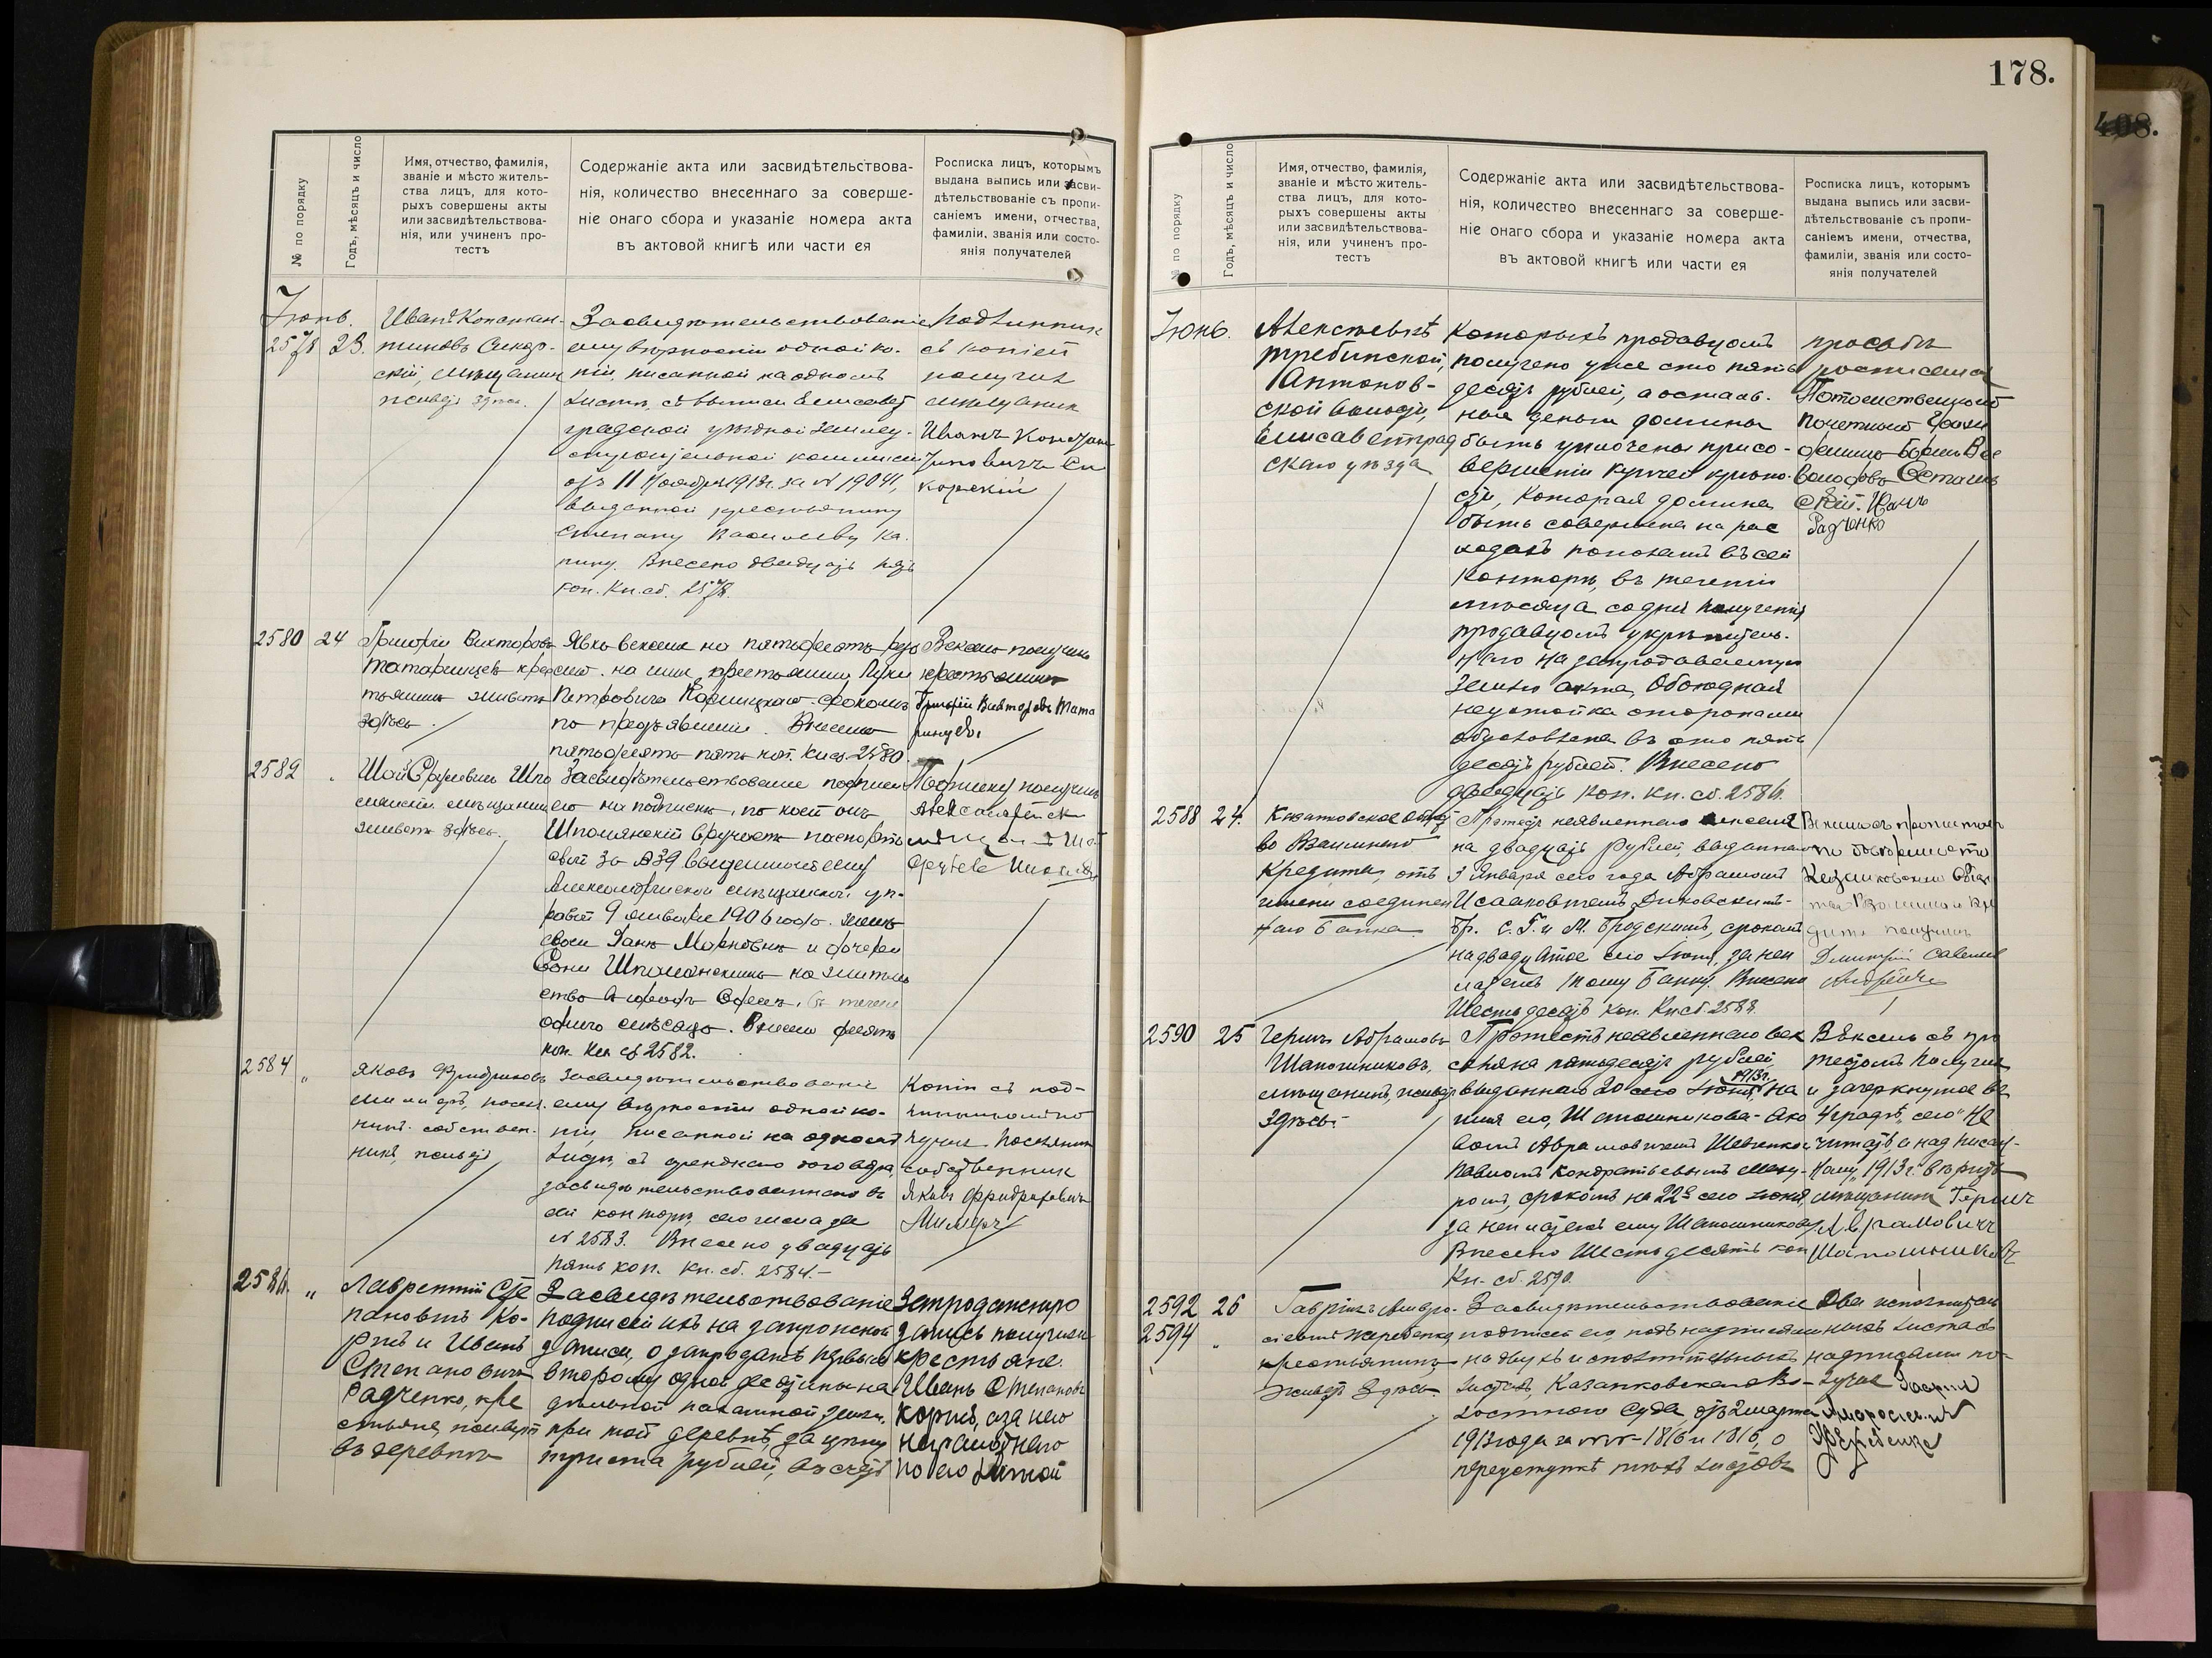 178.
408.
№ по порядку
Годъ, мѣсяцъ и число
Имя, отчество, фамилія,
званіе и мѣсто житель-
ства лицъ, для кото-
рыхъ совершены акты
или засвидѣтельствова-
нія, или учиненъ про-
тестъ
Содержаніе акта или засвидѣтельствова-
нія, количество внесеннаго за соверше-
ніе онаго сбора и указаніе номера акта
въ актовой книгѣ или части ея
Росписка лицъ, которымъ
выдана выпись или засви-
дѣтельствованіе съ пропи-
саніемъ имени, отчества,
фамиліи, званія или состо-
янія получателей
Іюнь.
2578
23.
Иванъ Констан-
тиновъ Сикор-
скій, мѣщанин
живет здѣсь.
Засвидѣтельствованіе
ему вѣрности одной ко-
піи, писанной на одномъ
листѣ, съ выписи Елисавет
градской уѣздной землеу-
строительной комиссіи
отъ 11 Ноября 1913г. за № 19041,
выданной крестьянину
Степану Васильеву Ка-
пину. Внесено двадцать пять
коп. Кн. сб. 2578.
Подлинник
съ копіей
получил
мѣщанин
Иванъ Констан
тиновичъ Си
корскій
2580
24
Григорій Викторовъ
Татаринцев крес
тьянин живетъ
здѣсь.
Явка векселя на пятьдесятъ руб
лей на имя крестьянина Луки
Петровича срокомъ
по предъявленіи. Внесено
пятьдесятъ пять коп. Кн. сб. 2580.
Вексель получилъ
крестьянинъ
Григорій Викторовъ Тата
ринцевъ
2582
"
Шая Сруlевичъ Шпо
лянскій мѣщанин
живетъ здѣсь.
Засвидѣтельствованіе подписи
его на подпискѣ, по коей онъ
Шполянскій вручаетъ паспортъ
свой за № 39 выданный ему
Александрійской мѣщанской уп-
равой 9 1906 года женѣ
своей Марковнѣ и дочерѣ
Сони Шполянскимъ на житель
ство въ городѣ Одессѣ, въ теченіе
одного мѣсяца. Внесено десять
коп. Кн. сб 2582.
Подписку получилъ
Александрійск
Шая
Срулев
2584
"
Яковъ Фридриховъ
Миллеръ, посел.
нинъ собствен-
никъ, живетъ
Засвидѣтельствованіе
ему вѣрности одной ко-
піи, писанной на одномъ
листѣ, съ аренднаго договора,
засвидѣтельствованнаго въ
сей конторѣ, сего числа за
№ 2583. Внесено двадцать
пять коп. Кн. сб. 2584.-
Копію съ под-
линникомъ по
лучил поселянин
собственник
Яковъ Фридрихович
Миллеръ
2586.
"
Лаврентій Сте
пановичъ Ко-
ржъ и Иванъ
Степановичъ
Радченко, кре
стьяне, живут
въ деревнѣ
Засвидѣтельствованіе
подписей ихъ на запродажной
записи, о запродажѣ первымъ
второму одной десятины на
дѣльной пахатной земли,
при той деревнѣ, за цѣну
триста рублей, въ счетъ
Запродажную
запись получили
крестьяне
Иванъ Степановъ
Коржъ, а за него
неграмотнаго
по его личной
№ по порядку
Годъ, мѣсяцъ и число
Имя, отчество, фамилія,
званіе и мѣсто житель-
ства лицъ, для кото-
рыхъ совершены акты
или засвидѣтельствова-
нія, или учиненъ про-
тестъ
Содержаніе акта или засвидѣтельствова-
нія, количество внесеннаго за соверше-
ніе онаго сбора и указаніе номера акта
въ актовой книгѣ или части ея
Росписка лицъ, которымъ
выдана выпись или засви-
дѣтельствованіе съ пропи-
саніемъ имени, отчества,
фамиліи, званія или состо-
янія получателей
Іюнь.
Алексѣевкѣ
требинской,
Антонов-
ской волости,
Елисаветград
скаго уѣзда
Которыхъ продавцомъ
получено уже сто пять
десятъ рублей, а осталь-
ныя деньги должны
быть уплочены при со-
вершеніи купчей крѣпо-
сти, которая должна
быть совершена на рас
ходахъ пополамъ въ сей
конторѣ, въ теченіи
мѣсяца со дня полученія
продавцомъ укрѣпитель-
наго на запродаваемую
землю акта. Обоюдная
неустойка сторонами
обусловлена въ сто пять
десятъ рублей. Внесено
двадцать коп. Кн. сб. 2586.
просьбѣ
росписался
Потомственный
почетный граж
данинъ Борисъ Все
володовъ
скій. Иванъ
Радченко
2588
24.
Казанковское Общ
во Взаимнаго
Кредита, отъ
имени соединен
наго Банка
Протестъ неявленнаго векселя
на двадцать рублей, выданнаго
3 Января сего года Абрамомъ
Исааковичемъ
бр. С. Г. и М. Бродскимъ, срокомъ
на двадцатое сего Іюня, за не п
латежъ тому Банку. Внесено
Шестьдесятъ коп. Кн. сб 2588.
Вексель съ протестомъ
по довѣренности
Казанковскаго Общ
тва Взаимнаго Кре
дита получилъ
Дмитрій Савельев
2590
25
Гершъ Абрамовъ
Шапошниковъ,
мѣщанинъ, живет
здѣсь
Протестъ неявленнаго век
селя на пятьдесятъ рублей,
выданнаго 20 сего Іюня 1913г. на
имя его, Шапошникова
вомъ Абрамовичемъ Шевченко и
Павломъ Кондратьевымъ
ромъ, срокомъ на 22е сего Іюня,
за неплатежъ ему Шапошникову
Внесено Шестьдесятъ коп
Кн. сб. 2590.
Вексель съ про
тестомъ получил
и зачеркнутое въ
4 графѣ „сего" не
читать, а над писан-
ному „1913г." вѣрить
мѣщанинъ Гершъ
Аврамовичъ
Шапошниковъ
2592
2594
26
"
Гавріилъ Амвро-
сіевичъ Жеребенко
крестьянинъ
живетъ здѣсь.
Засвидѣтельствованіе
подписи его подъ надписями
на двухъ исполнительныхъ
листахъ, Казанковскаго Во-
лостного Суда, отъ 2 марта
1913 года за №№ 1816 и 1816, о
переуступкѣ тѣхъ листовъ
Два исполнитель
ныхъ листа съ
надписями по-
лучил Гаврiил
Амвросіевич
Жеребенко